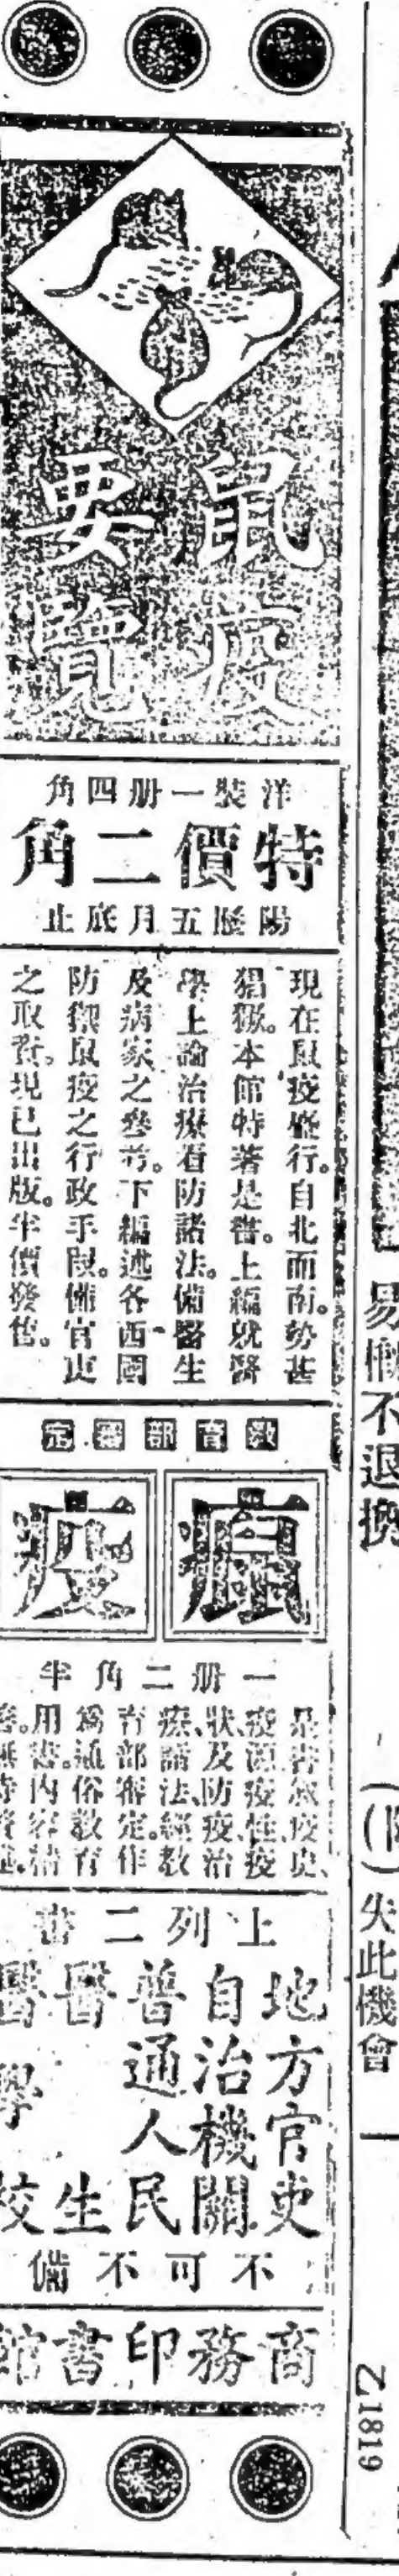 鼠疫
要覽
洋裝一册四角
特價二角
陽曆五月底止
現在鼠疫盛行。自北而南。勢甚
猖獗。本館特著是書。上編就醫
學上論治療看防諸法。備醫生
及病家之參考。下編述各西國
防禦鼠疫之行政手段。備官吏
之取資。現已出版。半價發售。
教育部審定
瘟疫
一册二角半
是書叙疫史、
疫源、疫性、疫
狀及防疫、治
疾諸法、經教
育部審定。作
爲通俗教育
用書。內容精
上列二書
地方官吏
自治機關
普通人民
醫生
醫學校
不可不備
商務印書館
易慨不退換
失此機會
乙1819